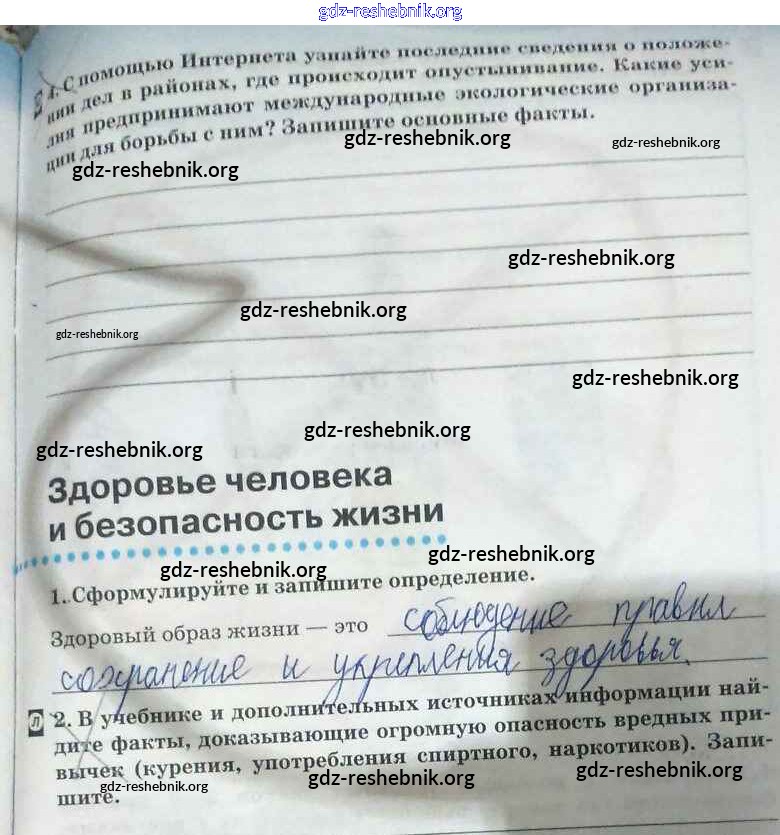 gdz-reshebnik.org
4. С помощью Интернета узнайте последние сведения о положе-
нии дел в районах, где происходит опустынивание. Какие уси-
лия предпринимают международные экологические организа-
ции для борьбы с ним? Запишите основные факты.
gdz-reshebnik.org
gdz-reshebnik.org
gdz-reshebnik.org
gdz-reshebnik.org
gdz-reshebnik.org
gdz-reshebnik.org
gdz-reshebnik.org
gdz-reshebnik.org
gdz-reshebnik.org
Здоровье человека
и безопасность жизни
gdz-reshebnik.org
gdz-reshebnik.org
1. Сформулируйте и запишите определение.
Здоровый образ жизни — это соблюдение правил
сохранение и укрепления здоровья.
л 2. В учебнике и дополнительных источниках информации най-
дите факты, доказывающие огромную опасность вредных при-
вычек (курения, употребления спиртного, наркотиков). Запи-
шите.
gdz-reshebnik.org
gdz-reshebnik.org
gdz-reshebnik.org